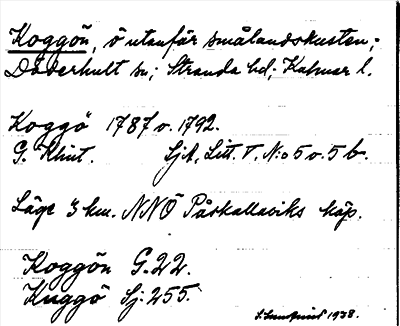 Koggön, ö utanför smålandskusten;
Döderhult sn; Stranda hd; Kalmar l.
Koggö 1787 o. 1792.
G. Klint. SjK, Litt. V, N:o 5 o. 5 b.
Läge 3 km. NNÖ Påskallaviks köp.
Koggön G.22.
Kuggö Sj:255.
1938.